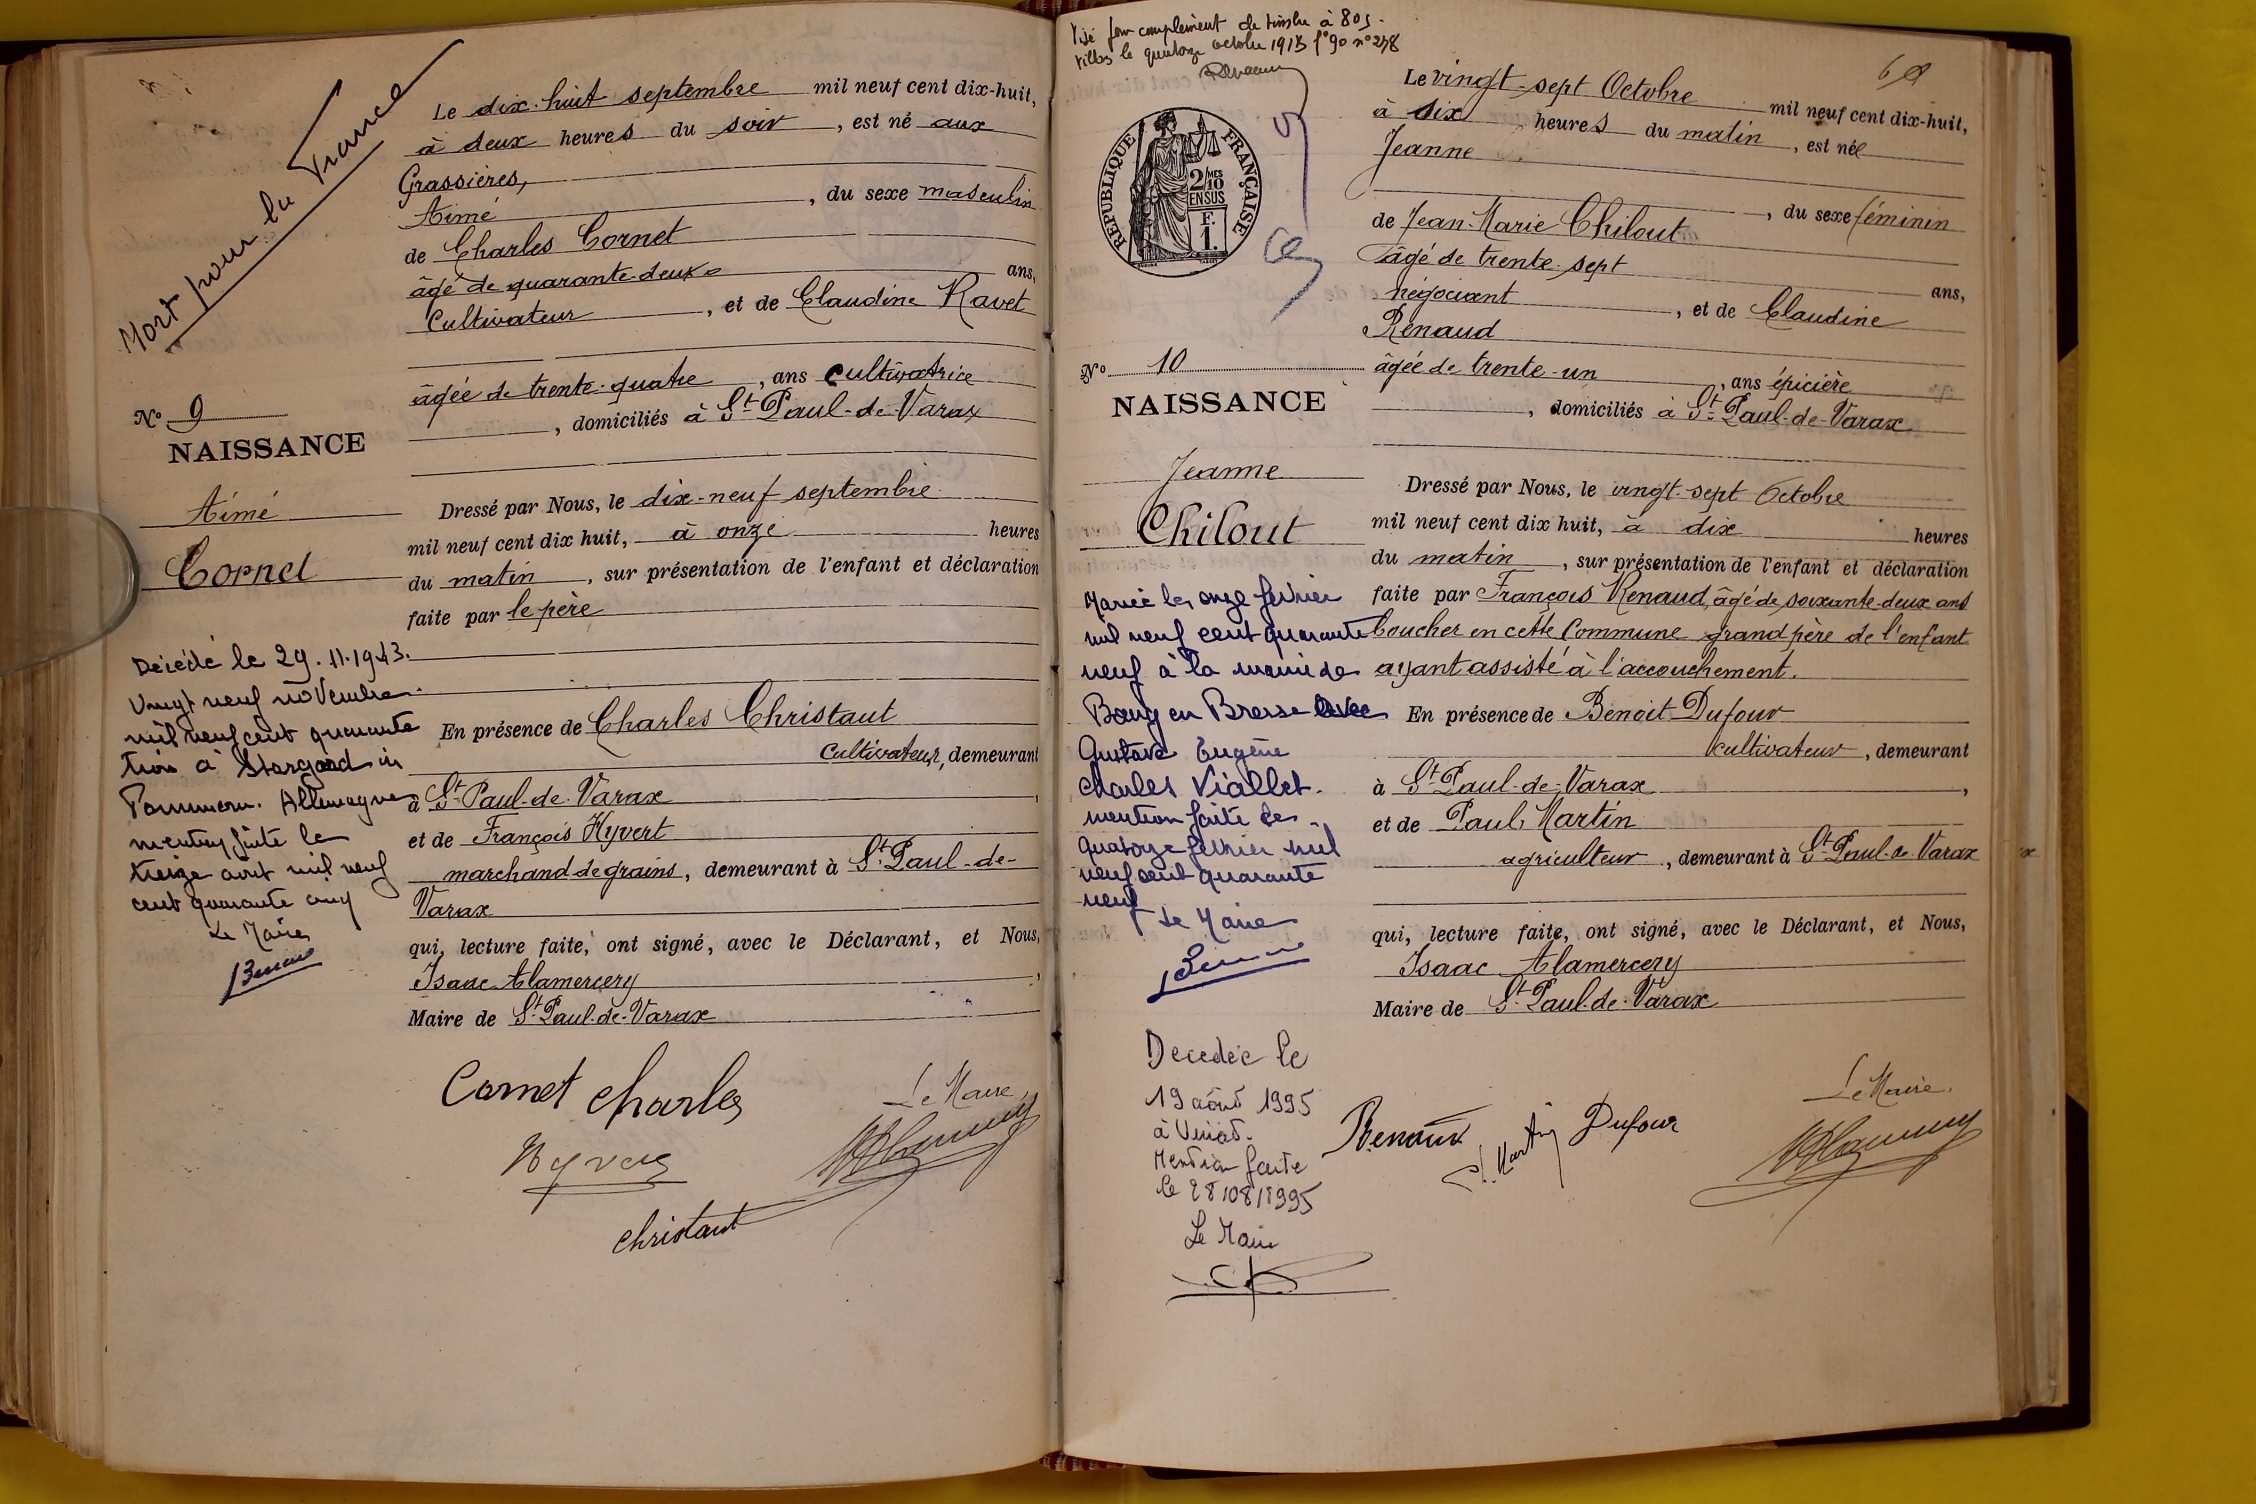 Mort pour la France
Le dix-huit septembre mil neuf cent dix-huit,
à deux heures du soir, est né aux
Grassières,
Aimé, du sexe masculin
de Charles Cornet
âgé de quarante-deux ans,
Cultivateur, et de Claudine Ravet
âgée de trente-quatre, ans cultivatrice
, domiciliés à St Paul-de-Varax
No 9
NAISSANCE
Aimé
Cornet
Dressé par Nous, le dix-neuf septembre
mil neuf cent dix huit, à onze heures
du matin, sur présentation de l'enfant et déclaration
faite par le père
En présence de Charles Christaut
Cultivateur, demeurant
à St Paul-de-Varax,
et de François Hyvert
marchand de grains, demeurant à St Paul-de-
Varax
qui, lecture faite, ont signé, avec le Déclarant, et Nous,
Isaac Alamercery,
Maire de St Paul-de-Varax
Décédé le 29.11.1943.
Vingt neuf novembre
mil neuf cent quarante
trois à Stargard in
Pommern. Allemagne
mention faite le
treize août mil neuf
cent quarante cinq
Le Maire
Cornet Charles
Le Maire
Hyvert
Christaut
Visé pour complément de timbre à 80
le quatorze octobre 191 f° 90 n° 278
68
REPUBLIQUE FRANÇAISE
2/10MES
EN SUS
F.
1.
Le vingt-sept Octobre mil neuf cent dix-huit,
à six heures du matin, est née
Jeanne
, du sexe féminin
de Jean-Marie Chilout
âgé de trente-sept ans,
négociant, et de Claudine
Renaud
âgée de trente-un, ans épicière
, domiciliés à St Paul-de-Varax
No 10
NAISSANCE
Jeanne
Chilout
Dressé par Nous, le vingt-sept Octobre
mil neuf cent dix huit, à dix heures
du matin, sur présentation de l'enfant et déclaration
faite par François Renaud, âgé de soixante-deux ans
boucher en cette Commune grand père de l'enfant
ayant assisté à l'accouchement.
En présence de Benoit Dufour
cultivateur, demeurant
à St Paul-de-Varax,
et de Paul Martin
agriculteur, demeurant à St Paul-de-Varax
qui, lecture faite, ont signé, avec le Déclarant, et Nous,
Isaac Alamercery
Maire de St Paul-de-Varax
Mariée le onze février
mil neuf cent quarante
neuf à la mairie de
Bourg en Bresse avec
Gustave Eugène
Charles Viallet.
mention faite le
quatorze février mil
neuf cent quarante
neuf
Le Maire
Décédée le
19 août 1995
à Viriat.
Mention faite
le 28/08/1995
Le Maire
Renaud
P. Martin
Dufour
Le Maire